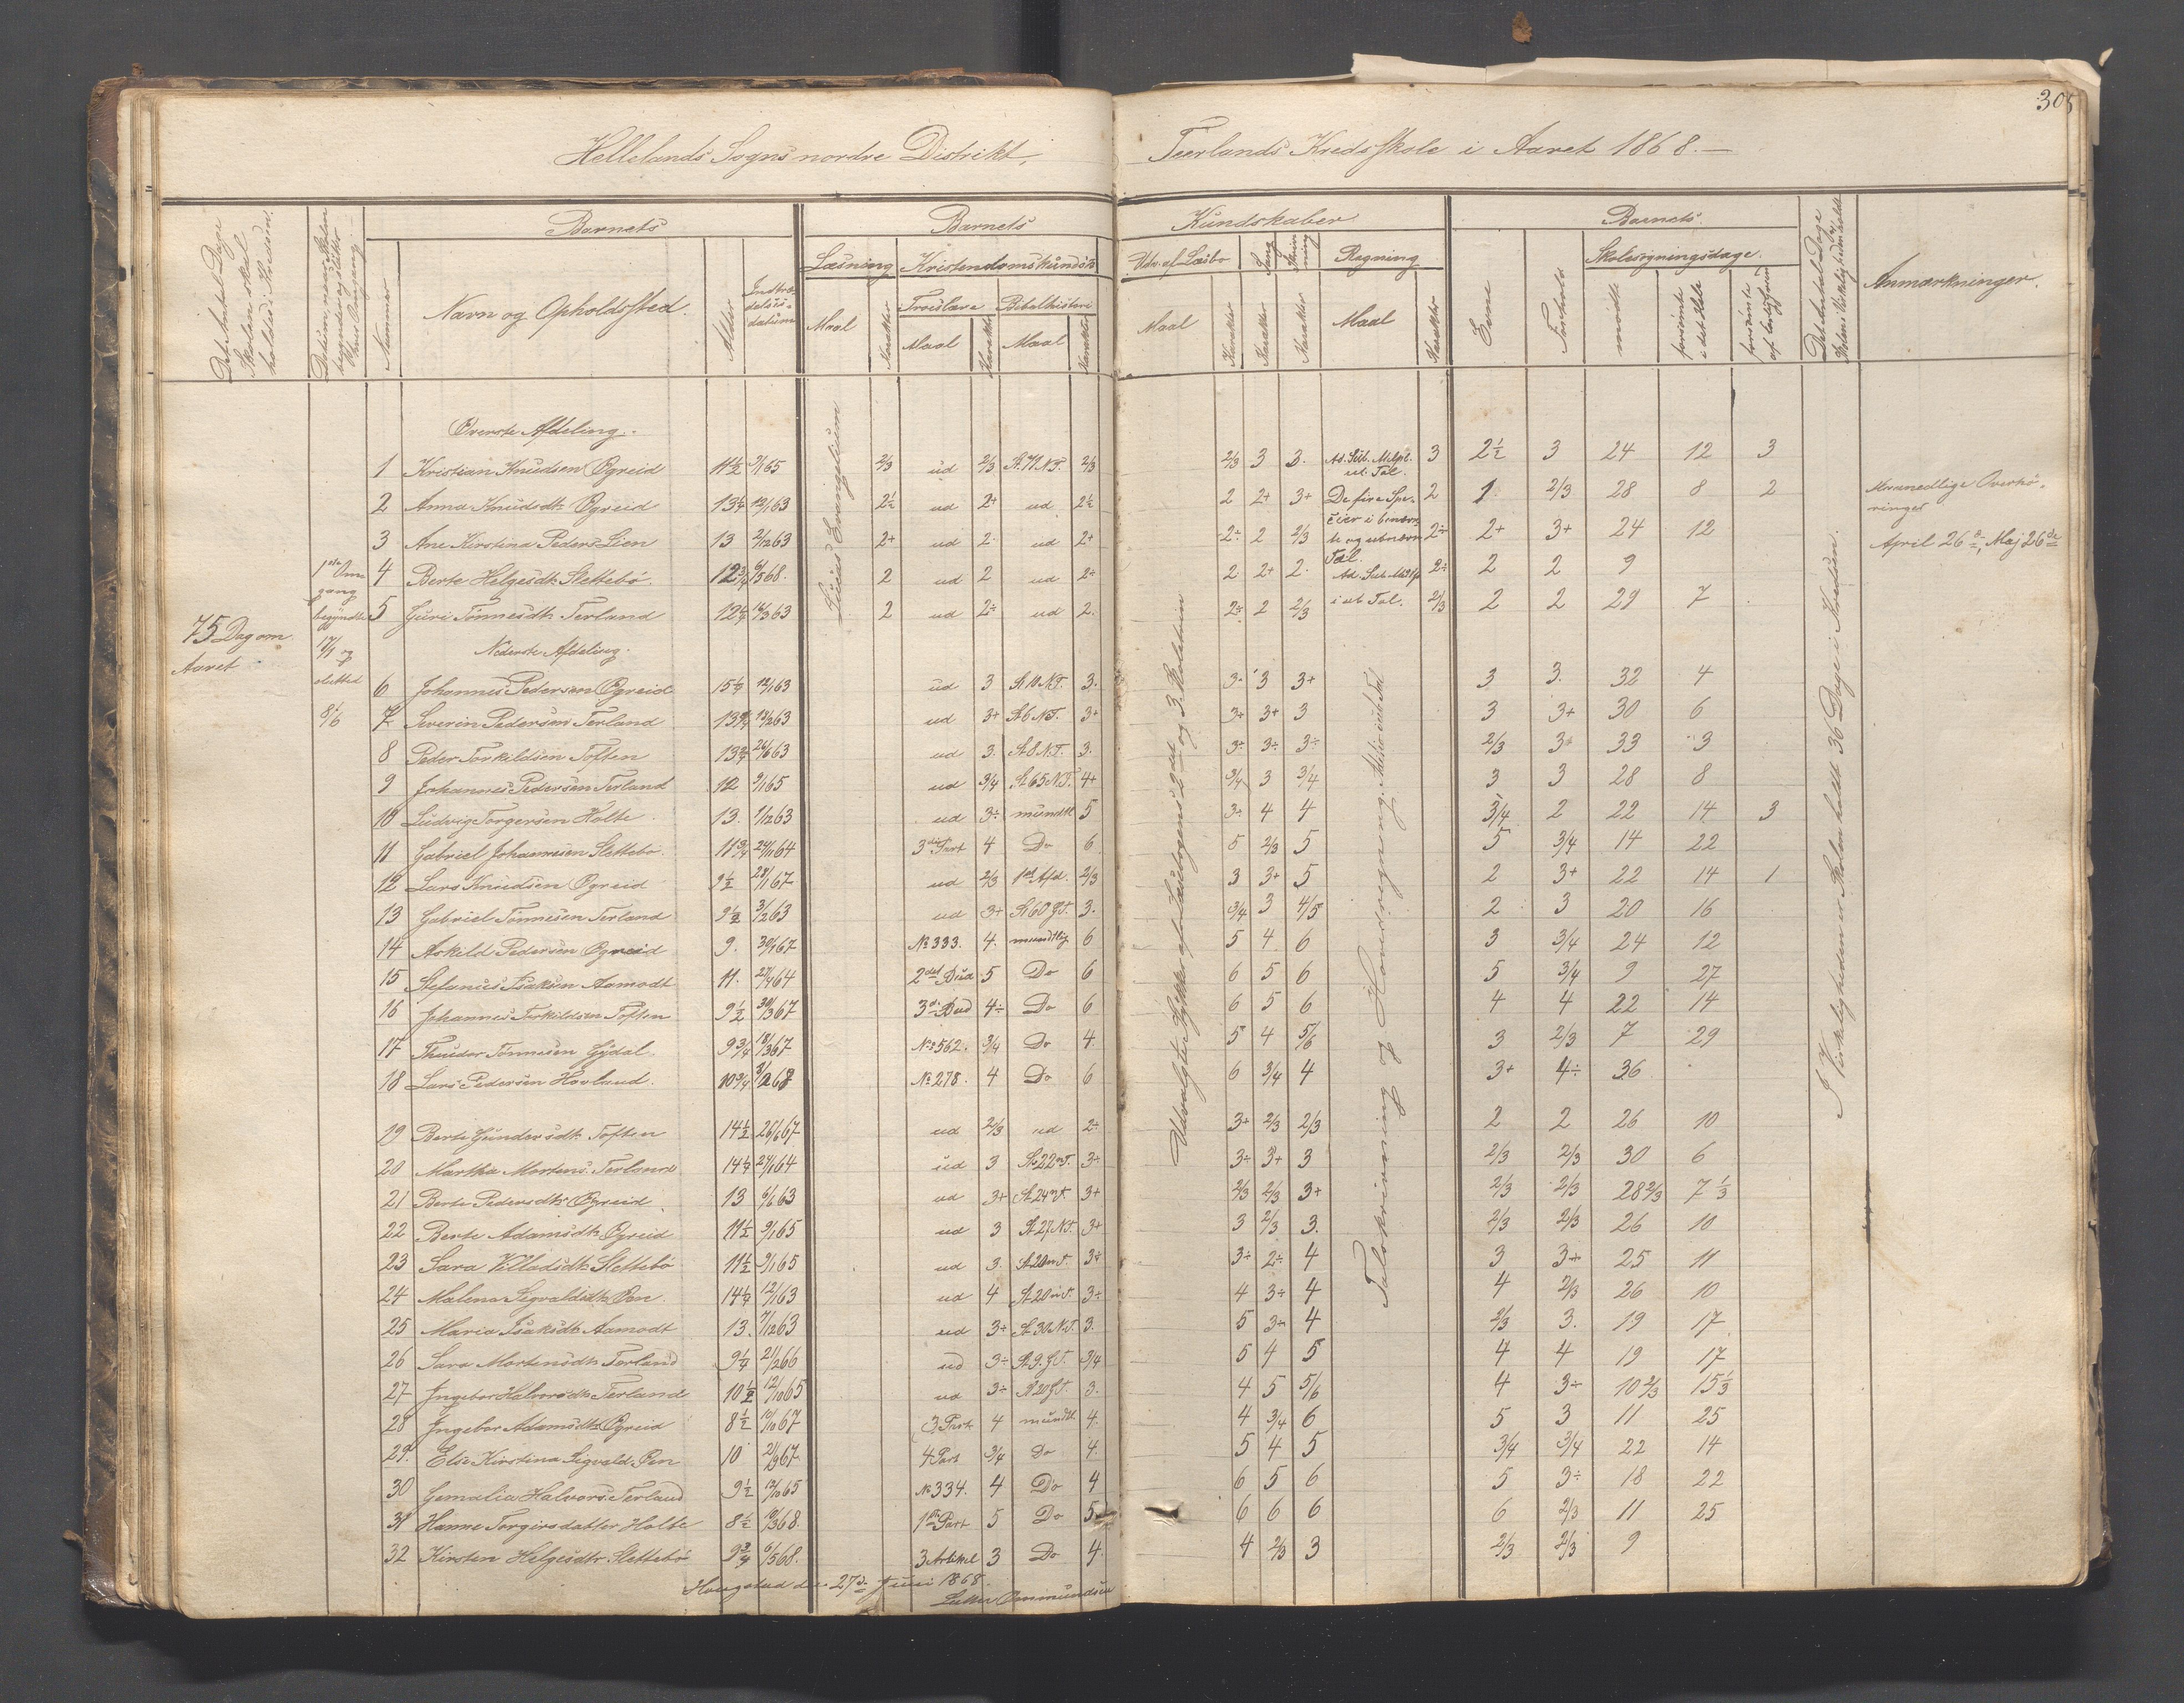 305
Hellelands Sogns nordre Distrikt, Teerlands Kredsskole i Aaret 1868.—
Barnets Barnets Kundskaber Barnets
Det Antal Dage Skolen skal holdes i Kredsen.
Nummer
Navn og Opholdssted.
Alder
Indtrædelsesdatum
Læsning Kristendomskundsk. Udv. af Læsebo Sang Skrivning Regning
Troeslære Bibelhistorie
Maal Karakter Maal Karakter Maal Karakter Maal Karakter Karakter Karakter Maal Karakter
Evne Forhold
Skolesøgningsdage.
mødte forsømte i det Hele forsømte af lovl. Grund
Det Antal Dage Skolen i Virkeligheden er holdt
Anmærkninger.
75 Dag om Aaret
1ste Omgang begyndte 17/1 og sluttet 8/6
Lucas Evangelium
Udvalgte Stykker af Læsebogens 2det og 3. Skoletrin
Talskrivning og Hovedregning.
I Virkeligheden er Skolen holdt 36 Dage i Kredsen.
Øverste Afdeling.
1 Kristian Knudsen Øgreid 11½ 9/1 65 2/3 ud 2/3 St. 71 N.T. 2/3 2/3 3 3. Ad. Sub. Mltpl. i ub. Tal. 3 2½ 3 24 12 3
2 Anna Knudsdtr Øgreid 13¼ 12/1 63 2½ ud 2+ ud 2½ 2 2+ 3+ De fire Spe- 2 1 2/3 28 8 2 Maanedlige Overhø-
cier i benævn ringer
3 Ane Kirstina Peders Lien 13 2/12 63 2+ ud 2. ud 2+ 2÷ 2 2/3 te og ubenævn 2÷ 2+ 3+ 24 12 April 26de, Maj 26de
Tal.
4 Berte Helgesdtr Slettebö. 12¾ 6/5 68. 2 ud 2 ud 2÷ 2 2+ 2. Ad. Sub. Mltp 2÷ 2 2 9
5 Guri Tönnesdtr Terland 12¼ 16/3 63 2 ud 2÷ ud 2. 2÷ 2 2/3 i ub. Tal. 2/3 2 2 29 7
Nederste Afdeling.
6 Johannes Pedersen Øgreid 15¼ 12/1 63 ud 3 St. 10 N.T. 3. 3÷ 3 3+ 3 3. 32 4
7 Severin Pedersen Terland 13¾ 12/2 63 ud 3+ St. 6 N.T. 3+ 3+ 3+ 3 3 3+ 30 6
8 Peder Torkildsen Toften 13¾ 26/6 63 ud 3. St. 8 N.T. 3. 3÷ 3÷ 3÷ 2/3 3÷ 33 3
9 Johannes Pedersen Terland 12 9/1 65 ud 3/4 St. 65 N.T. 4+ 3/4 3 3/4 3 3 28 8
10 Ludvig Torgersen Holte 13. 7/12 63 ud 3÷ mundtl. 5 3÷ 4 4 3/4 2 22 14 3
11 Gabriel Johannesen Slettebö. 11¾ 24/11 64 3die Part 4 Do 6 5 2/3 5 5 3/4 14 22
12 Lars Knudsen Øgreid 9½ 28/1 67 ud 2/3 1ste Afd. 2/3 3 3+ 5 2 3+ 22 14 1
13 Gabriel Tönnesen Terland 9½ 3/2 63 ud 3+ St. 60 G.T. 3. 3/4 3 4/5 2 3 20 16
14 Askild Pedersen Øgreid 9. 30/1 67 No 333. 4. mundtlig 6 5 4 6 3 3/4 24 12
15 Stefanus Isaksen Aamodt 11. 27/4 64 2det Bud 5 Do 6 6 5 6 5 3/4 9 27
16 Johannes Torkildsen Toften 9½ 30/3 67 3die Bud 4÷ Do 6 6 5 6 4 4 22 14
17 Thuder Tönnesen Gydal. 9¾ 18/3 67 No 562. 3/4 Do 4. 5 4 5/6 3 2/3 7 29
18 Lars Pedersen Hovland. 10¾ 3/2 68 No 278. 4 Do 6 6 3/4 4 3+ 4÷ 36
19 Berte Gundersdtr Toften 14½ 26/6 67 ud 2/3 ud 2÷ 3+ 2/3 2/3 2 2 26 10
20 Martha Mortens. Terland 14¼ 24/1 64 ud 3 St. 22 N.T. 3÷ 3÷ 3+ 3 2/3 2/3 30 6
21 Berte Pedersdtr Øgreid 13 6/1 63 ud 3+ St. 24 N.T. 3+ 2/3 2/3 3+ 2/3 2/3 28 2/3 7 1/3
22 Berte Adamsdtr Øgreid 11½ 9/1 65 ud 3 St. 27 N.T. 3+ 3 2/3 3. 2/3 2/3 26 10
23 Sara Villadsdtr Slettebö 11½ 9/1 65 ud 3. St. 20 N.T. 3÷ 3÷ 2÷ 4 3 3÷ 25 11
24 Malena Sigvaldsdtr Pen 14¼ 12/1 63 ud 4 St. 20 N.T. 3÷ 4 3÷ 4 4 2/3 26 10
25 Maria Isaksdtr Aamodt 13. 7/12 63 ud 3+ St. 30 N.T. 3. 5 3÷ 4 2/3 3. 19 17
26 Sara Mortensdtr Terland 9¼ 21/2 66 ud 3÷ St. 9. G.T. 3/4 5 4 5 4 4 19 17
27 Ingebor Halvorsdtr Terland 10½ 12/10 65 ud 3÷ St. 20 G.T. 3. 4 5 5/6 4 3÷ 10 2/3 15 1/3
28 Ingebor Adamsdtr Øgreid 8½ 10/10 67 3 Part 4 mundtl. 4. 4 3/4 6 5 3 11 25
29. Else Kirstina Sigvald. Pen 10 2/9 67 4 Part 3/4 Do 4. 5 4 5 3/4 3/4 22 14
30 Gemalia Halvors. Terland 9½ 12/10 65 No 334. 4 Do 4 6 5 6 5 3÷ 18 22
31 Hanne Torgirsdatter Holte 8½ 18/3 68. 1ste Part 5 Do 5 6 6 6 6 2/3 11 25
32 Kirsten Helgesdtr Slettebö 9¾ 6/5 68. 3 Artikel 3 Do 4. 4 2/3 3 2/3 2/3 9
Haugstad den 27de Juni 1868.
Ommundsen